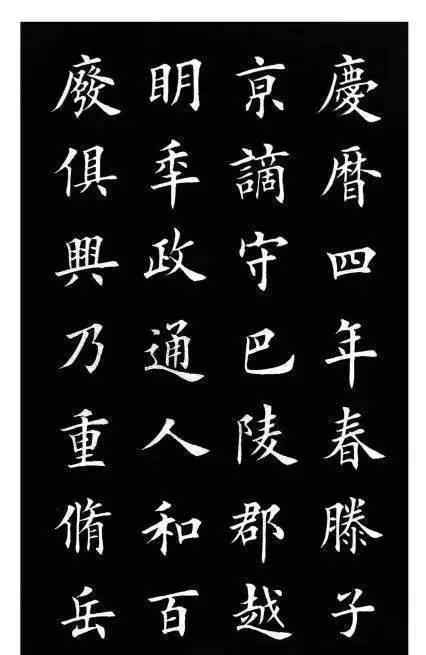 慶曆四年春滕子
京謫守巴陵郡越
明年政通人和百
廢俱興乃重脩岳